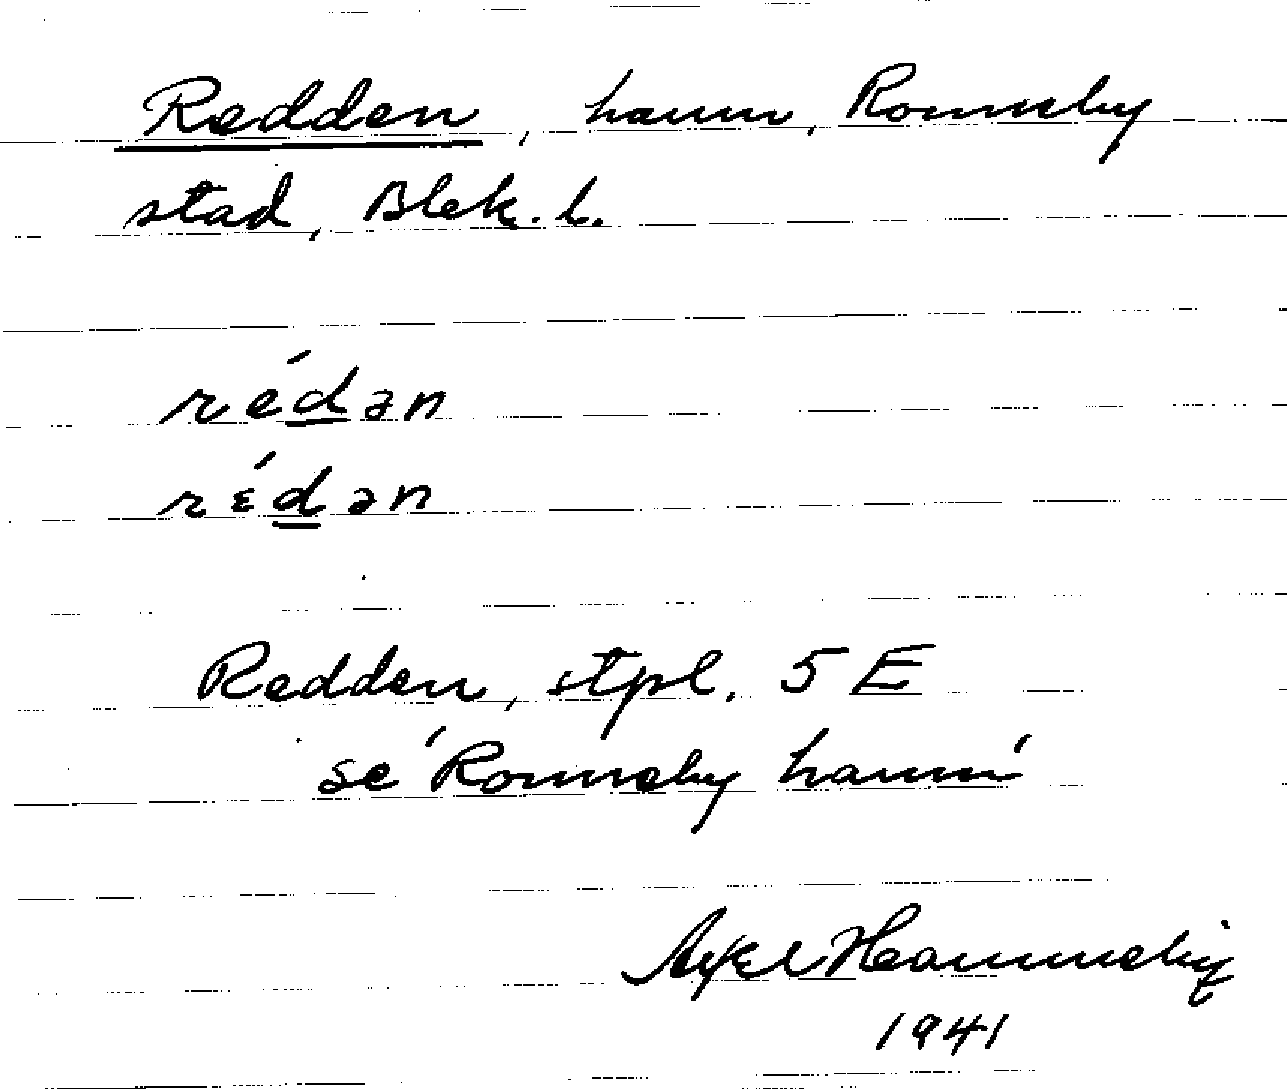 Redden, hamn, Ronneby
stad, Blek. l.
rédən
rɛ́dən
Redden, stpl. 5 E
se ́Ronneby hamń
Axel Hamneby
1941